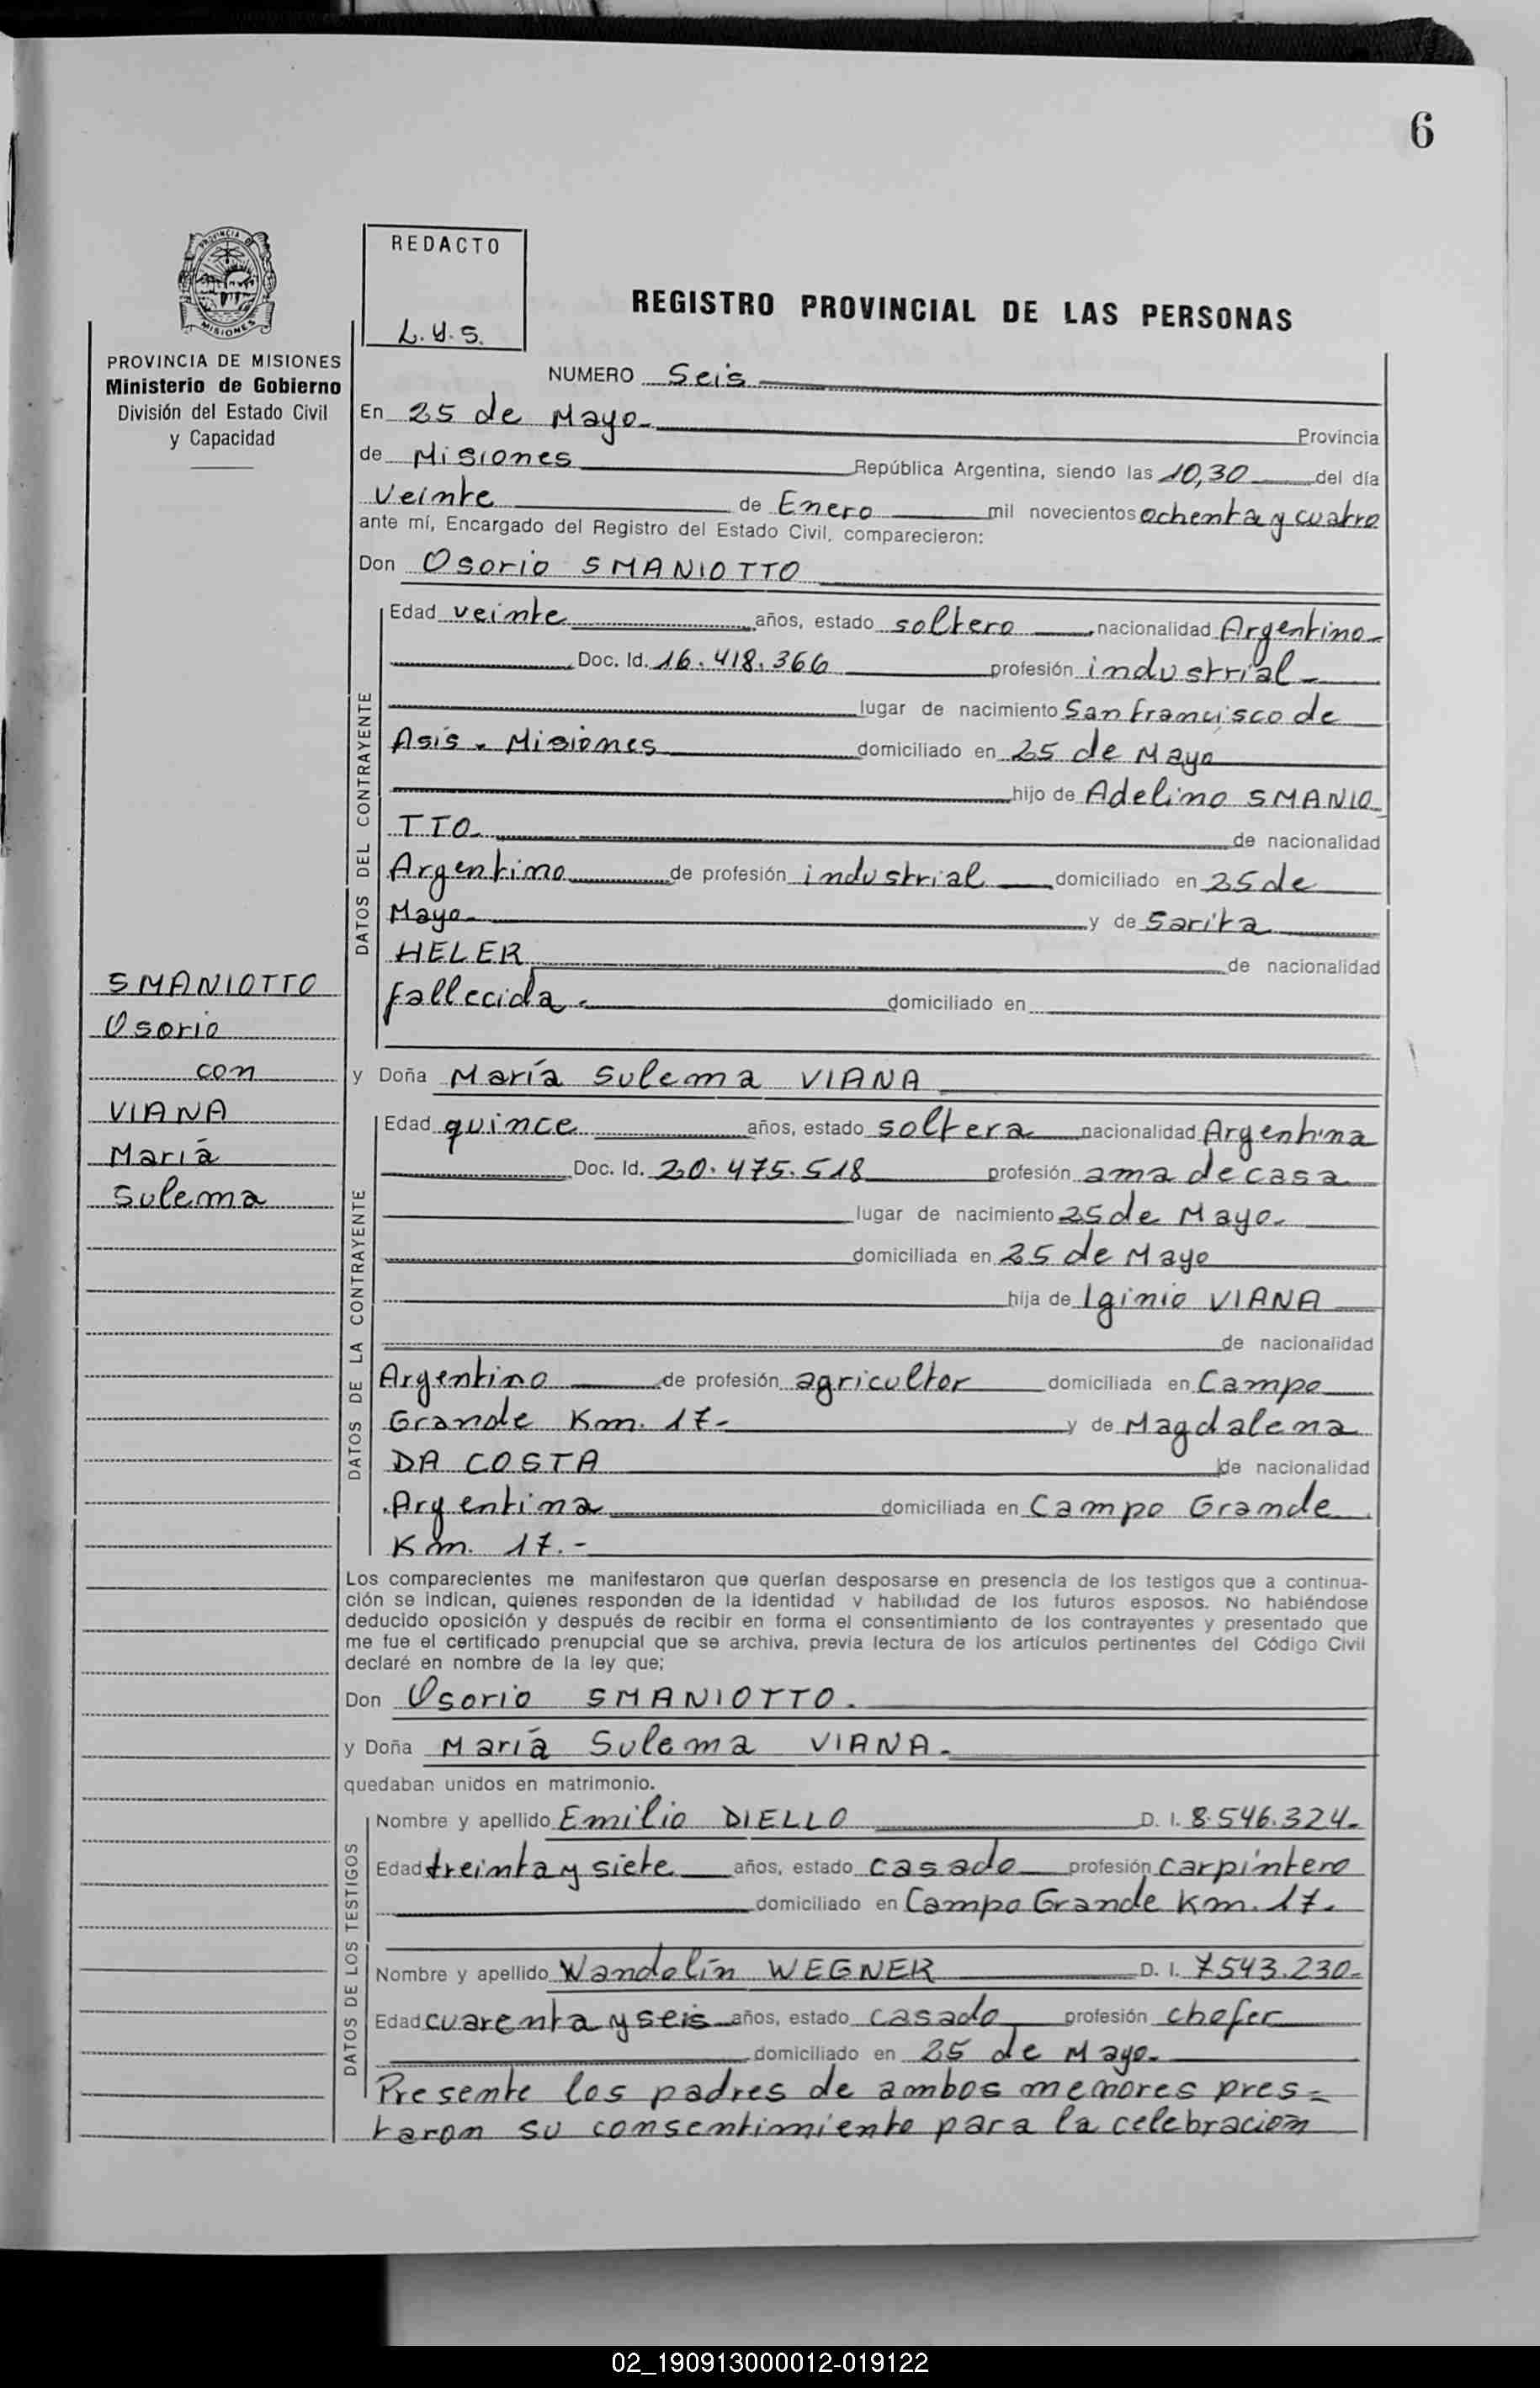 6
REDACTO
L.Y.S.
REGISTRO PROVINCIAL DE LAS PERSONAS
PROVINCIA DE MISIONES
Ministerio de Gobierno
División del Estado Civil
y Capacidad
NUMERO Seis
En 25 de Mayo Provincia
de Misiones República Argentina, siendo las 10,30 del día
veinte de Enero mil novecientos ochenta y cuatro
ante mí, Encargado del Registro del Estado Civil, comparecieron:
Don Osorio SMANIOTTO
DATOS DEL CONTRAYENTE
Edad veinte años, estado soltero nacionalidad Argentino
Doc. Id. 16.418.366 profesión industrial
lugar de nacimiento San Francisco de
Asís. Misiones domiciliado en 25 de Mayo
hijo de Adelino SMANIO
TTO de nacionalidad
Argentino de profesión industrial domiciliado en 25 de
Mayo y de Sarita
HELER de nacionalidad
fallecida. domiciliado en
SMANIOTTO
Osorio
con
VIANA
María
Sulema
y Doña María Sulema VIANA
DATOS DE LA CONTRAYENTE
Edad quince años, estado soltera nacionalidad Argentina
Doc. Id. 20.475.518 profesión ama de casa
lugar de nacimiento 25 de Mayo
domiciliada en 25 de Mayo
hija de Iginio VIANA
de nacionalidad
Argentino de profesión agricultor domiciliada en Campo
Grande Km. 17 y de Magdalena
DA COSTA de nacionalidad
Argentina domiciliada en Campo Grande
Km. 17.-
Los comparecientes me manifestaron que querían desposarse en presencia de los testigos que a continua-
ción se indican, quienes responden de la identidad y habilidad de los futuros esposos. No habiéndose
deducido oposición y después de recibir en forma el consentimiento de los contrayentes y presentado que
me fue el certificado prenupcial que se archiva, previa lectura de los artículos pertinentes del Código Civil
declaré en nombre de la ley que;
Don Osorio SMANIOTTO.
y Doña María Sulema VIANA.
quedaban unidos en matrimonio.
DATOS DE LOS TESTIGOS
Nombre y apellido Emilio DIELLO D. I. 8.546.324.
Edad treinta y siete años, estado casado profesión carpintero
domiciliado en Campo Grande Km. 17.
Nombre y apellido Wandolín WEGNER D. I. 7543.230
Edad cuarenta y seis años, estado casado profesión chofer
domiciliado en 25 de Mayo
Presente los padres de ambos menores pres=
taron su consentimiento para la celebracion
02_190913000012-019122